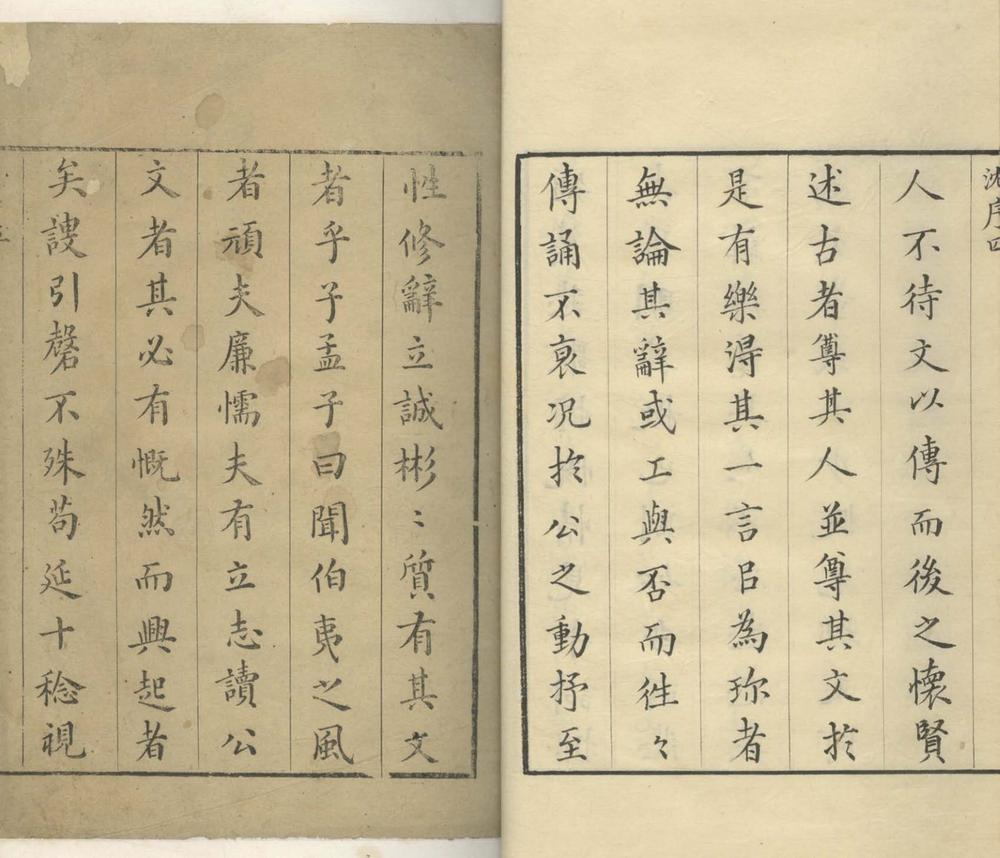 沈序四
人不待文以傳而後之懷賢
述古者尊其人並尊其文於
是有樂得其一言㠯為珎者
無論其辭或工與否而徃々
傳誦不衰况於公之動抒至
性修辭立誠彬〻質有其文
者乎子孟子曰聞伯夷之風
者頑夫廉懦夫有立志讀公
文者其必有慨然而興起者
矣謏引罄不殊苟延十稔視